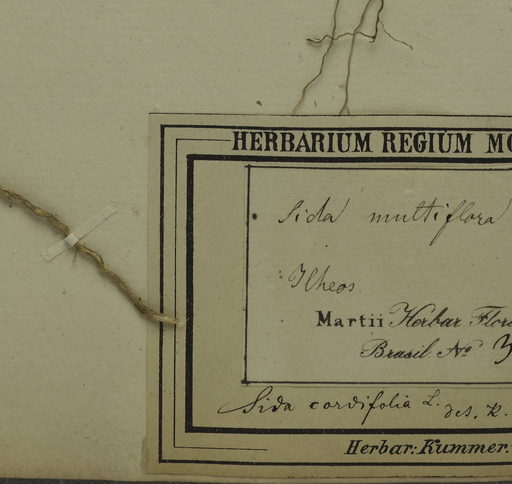 HERBARIUM REGIUM MO
Sida multiflora
Ilheos.
Martii Herbar Flor
Brasil. No 3
Sida cordifolia L. des. K.
Herbar: Kummer.